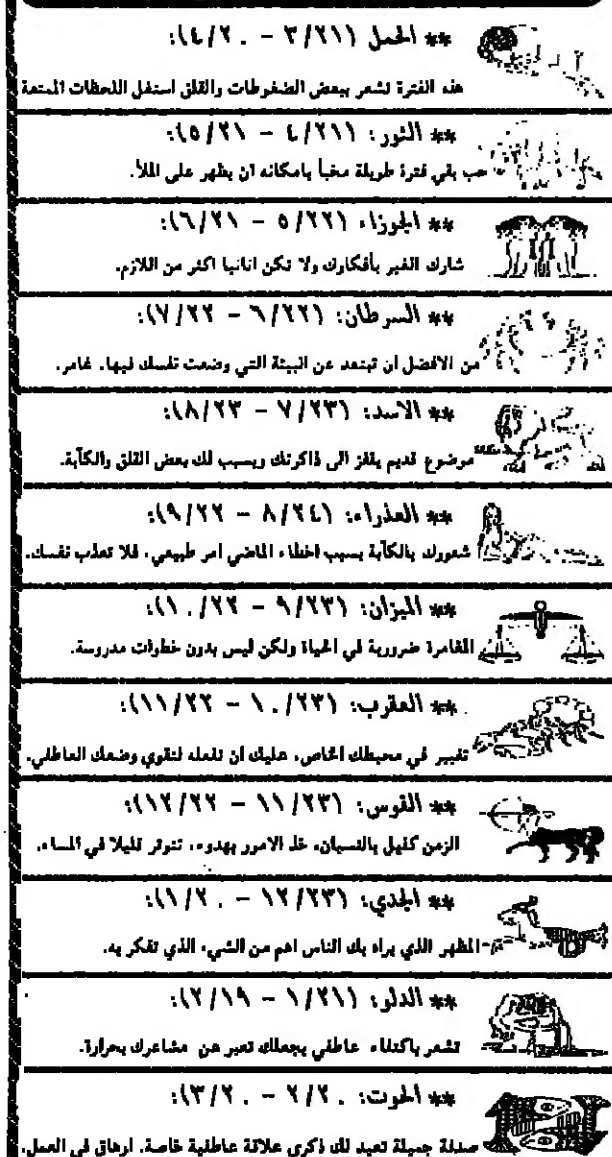 ** الحمل (٣/٢١ - ٤/٢٠):
هذه الفترة تشعر ببعض الضغوطات والقلق استغل اللحظات الممتعة
** الثور: (٤/٢١ - ٥/٢١):
حب بقي فترة طويلة مخبأ بامكانه ان يظهر على الملأ.
** الجوزاء (٥/٢٢ - ٦/٢١):
شارك الغير بأفكارك ولا تكن انانيا اكثر من اللازم.
** السرطان: (٦/٢٢ - ٧/٢٢):
من الافضل ان تبتعد عن البيئة التي وضعت نفسك فيها. غامر.
** الاسد: (٧/٢٣ - ٨/٢٣):
موضوع قديم يقفز الى ذاكرتك ويسبب لك بعض القلق والكآبة.
** العذراء: (٨/٢٤ - ٩/٢٢):
شعورك بالكآبة بسبب اخطاء الماضي امر طبيعي، فلا تعذب نفسك.
** الميزان: (٩/٢٣ - ١٠/٢٢):
المغامرة ضرورية في الحياة ولكن ليس بدون خطوات مدروسة.
** العقرب: (١٠/٢٣ - ١١/٢٢):
تغيير في محيطك الخاص، عليك ان تفعله لتقوي وضعك العاطفي.
** القوس: (١١/٢٣ - ١٢/٢٢):
الزمن كفيل بالنسيان، خذ الامور بهدوء، تتوتر قليلا في المساء.
** الجدي: (١٢/٢٣ - ١/٢٠):
المظهر الذي يراه بك الناس اهم من الشيء الذي تفكر به.
** الدلو: (١/٢١ - ٢/١٩):
تشعر باكتفاء عاطفي يجعلك تعبر عن مشاعرك بحرارة.
** الحوت: ٢/٢٠ - ٣/٢٠):
صدفة جميلة تعيد لك ذكرى علاقة عاطفية خاصة. ارهاق في العمل.